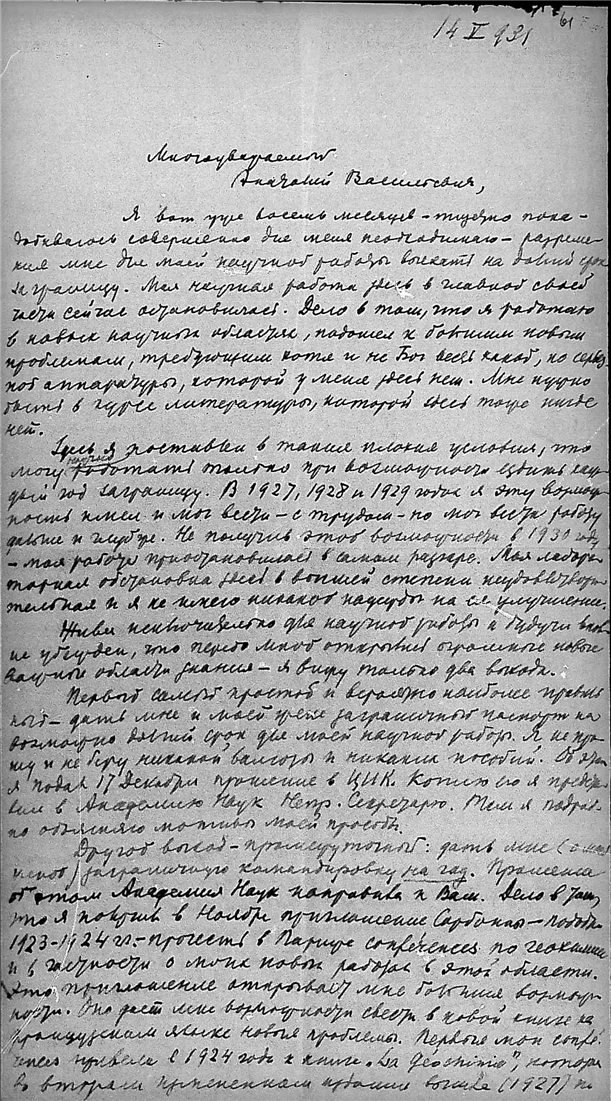 61
14 V 931
Многоуважаемый
Анатолий Васильевич,
Я вот уже восемь месяцев – тщетно пока –
добиваюсь совершенно для меня необходимаго – разреше-
ния мне для моей научной работы выехать на долгий срок
заграницу. Моя научная работа здесь в главной своей
части сейчас остановилась. Дело в том, что я работаю
в новых научных областях, подошел к большим новым
проблемам, требующим хотя и не Бог весть какой, но серьез-
ной аппаратуры, которой у меня здесь нет. Мне нужно
быть в курсе литературы, которой здесь тоже нигде
нет.
Здесь я поставлен в такия плохия условия, что
могу научно работать только при возможности ездить каж-
дый год заграницу. В 1927, 1928 и 1929 годах я эту возмож-
ность имел и мог вести – с трудом – но мог вести работу
дальше и глубже. Не получив этой возможности в 1930 году,
– моя работа приостановилась в самом разгаре. Моя лабора-
торная обстановка здесь в высшей степени неудовлетвори-
тельная и я не имею никакой надежды на ее улучшение.
Живя исключительно для научной работы и будучи
убежден, что передо мной открылись огромные новые
научные области знания – я вижу только два выхода.
Первый самый простой и вероятно наиболее правиль-
ный – дать мне и моей жене заграничный паспорт на
возможно долгий срок для моей научной работы. Я не про-
шу и не беру никакой валюты и никаких пособий. Об этом
я подал 17 Декабря прошение в ЦИК. Копию его я предста-
вил в Академию Наук Непр. Секретарю. Там я подроб-
но объясняю мотивы моей просьбы.
Другой выход – промежуточный: дать мне (с моей
женой) заграничную командировку на год. Прошение
об этом Академия Наук направила к Вам. Дело в том,
что я получил в Ноябре приглашение Сорбонны – подобно
1923-1924 гг. – прочесть в Париже conférences по геохимии
и в частности о моих новых работах в этой области.
Это приглашение открывает мне большия возмож-
ности. Оно даст мне возможность свести в новой книге на
французском языке новыя проблемы. Первые мои confé-
rences привели в 1924 году к книге „La Géochimie“, которая
во втором измененном издании вышла (1927) по